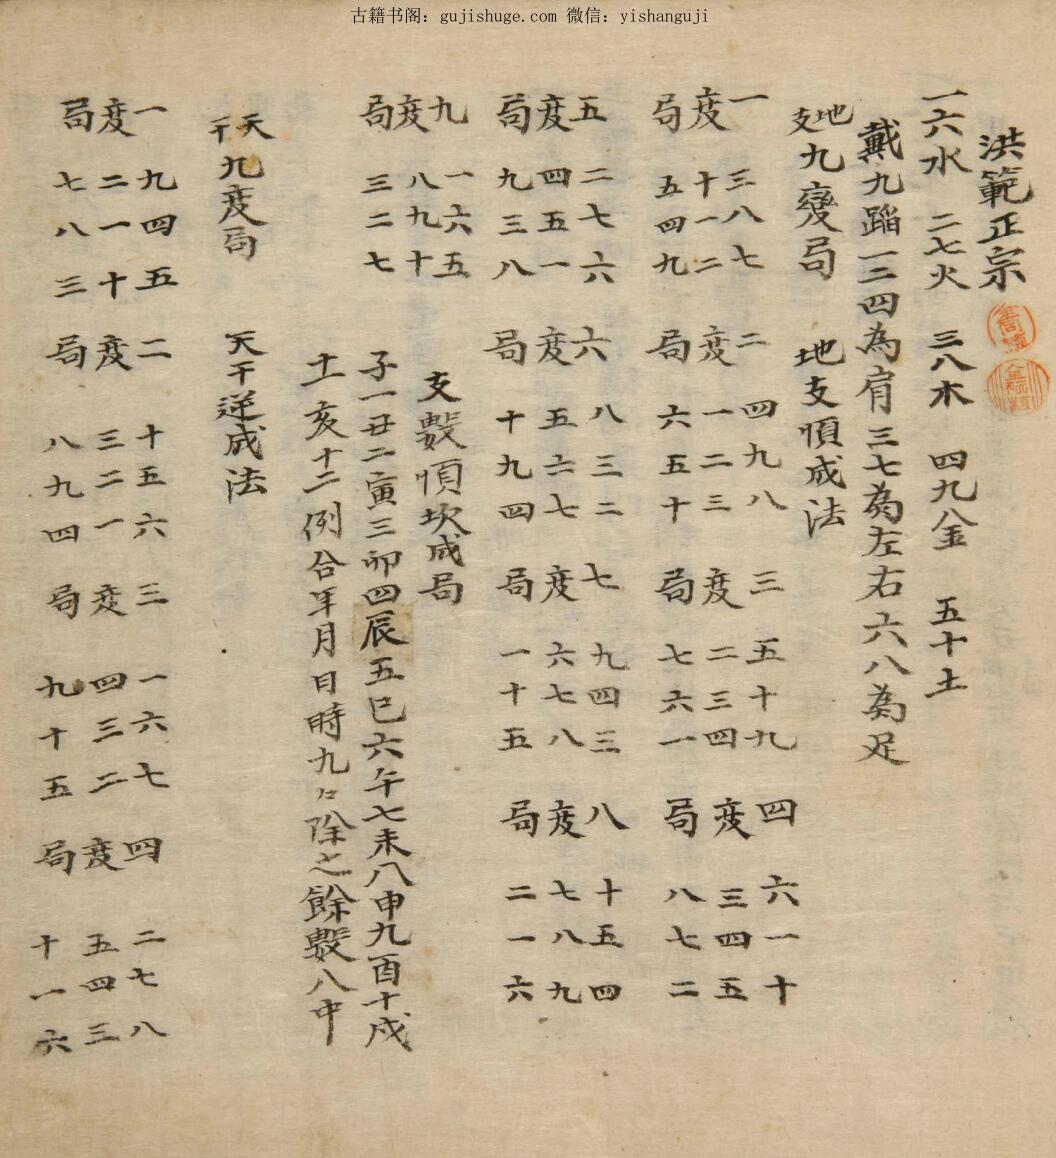 古籍书阁：gujishuge.com 微信：yishanguji
洪範正宗
一六水 二七火 三八木 四九金 五十土
戴九蹈一二四為肩三七為左右六八為足
地支九變局 地支順成法
一 三八七 二 四九八 三 五十九 四 六一十
度 十一二 度 一二三 度 二三四 度 三四五
局 五四九 局 六五十 局 七六一 局 八七二
五 二七六 六 八三二 七 九四三 八 十五四
度 四五一 度 五六七 度 六七八 度 七八九
局 九三八 局 十九四 局 一十五 局 二一六
九 一六五 支數順坎成局
度 八九十 子一丑二寅三卯四辰五巳六午七未八申九酉十戌
局 三二七
十一亥十二例合年月日時九々除之餘數八中
天干九度局 天干逆成法
一 九四五 二 十五六 三 一六七 四 二七八
度 二一十 度 三二一 度 四三二 度 五四三
局 七八三 局 八九四 局 九十五 局 十一六